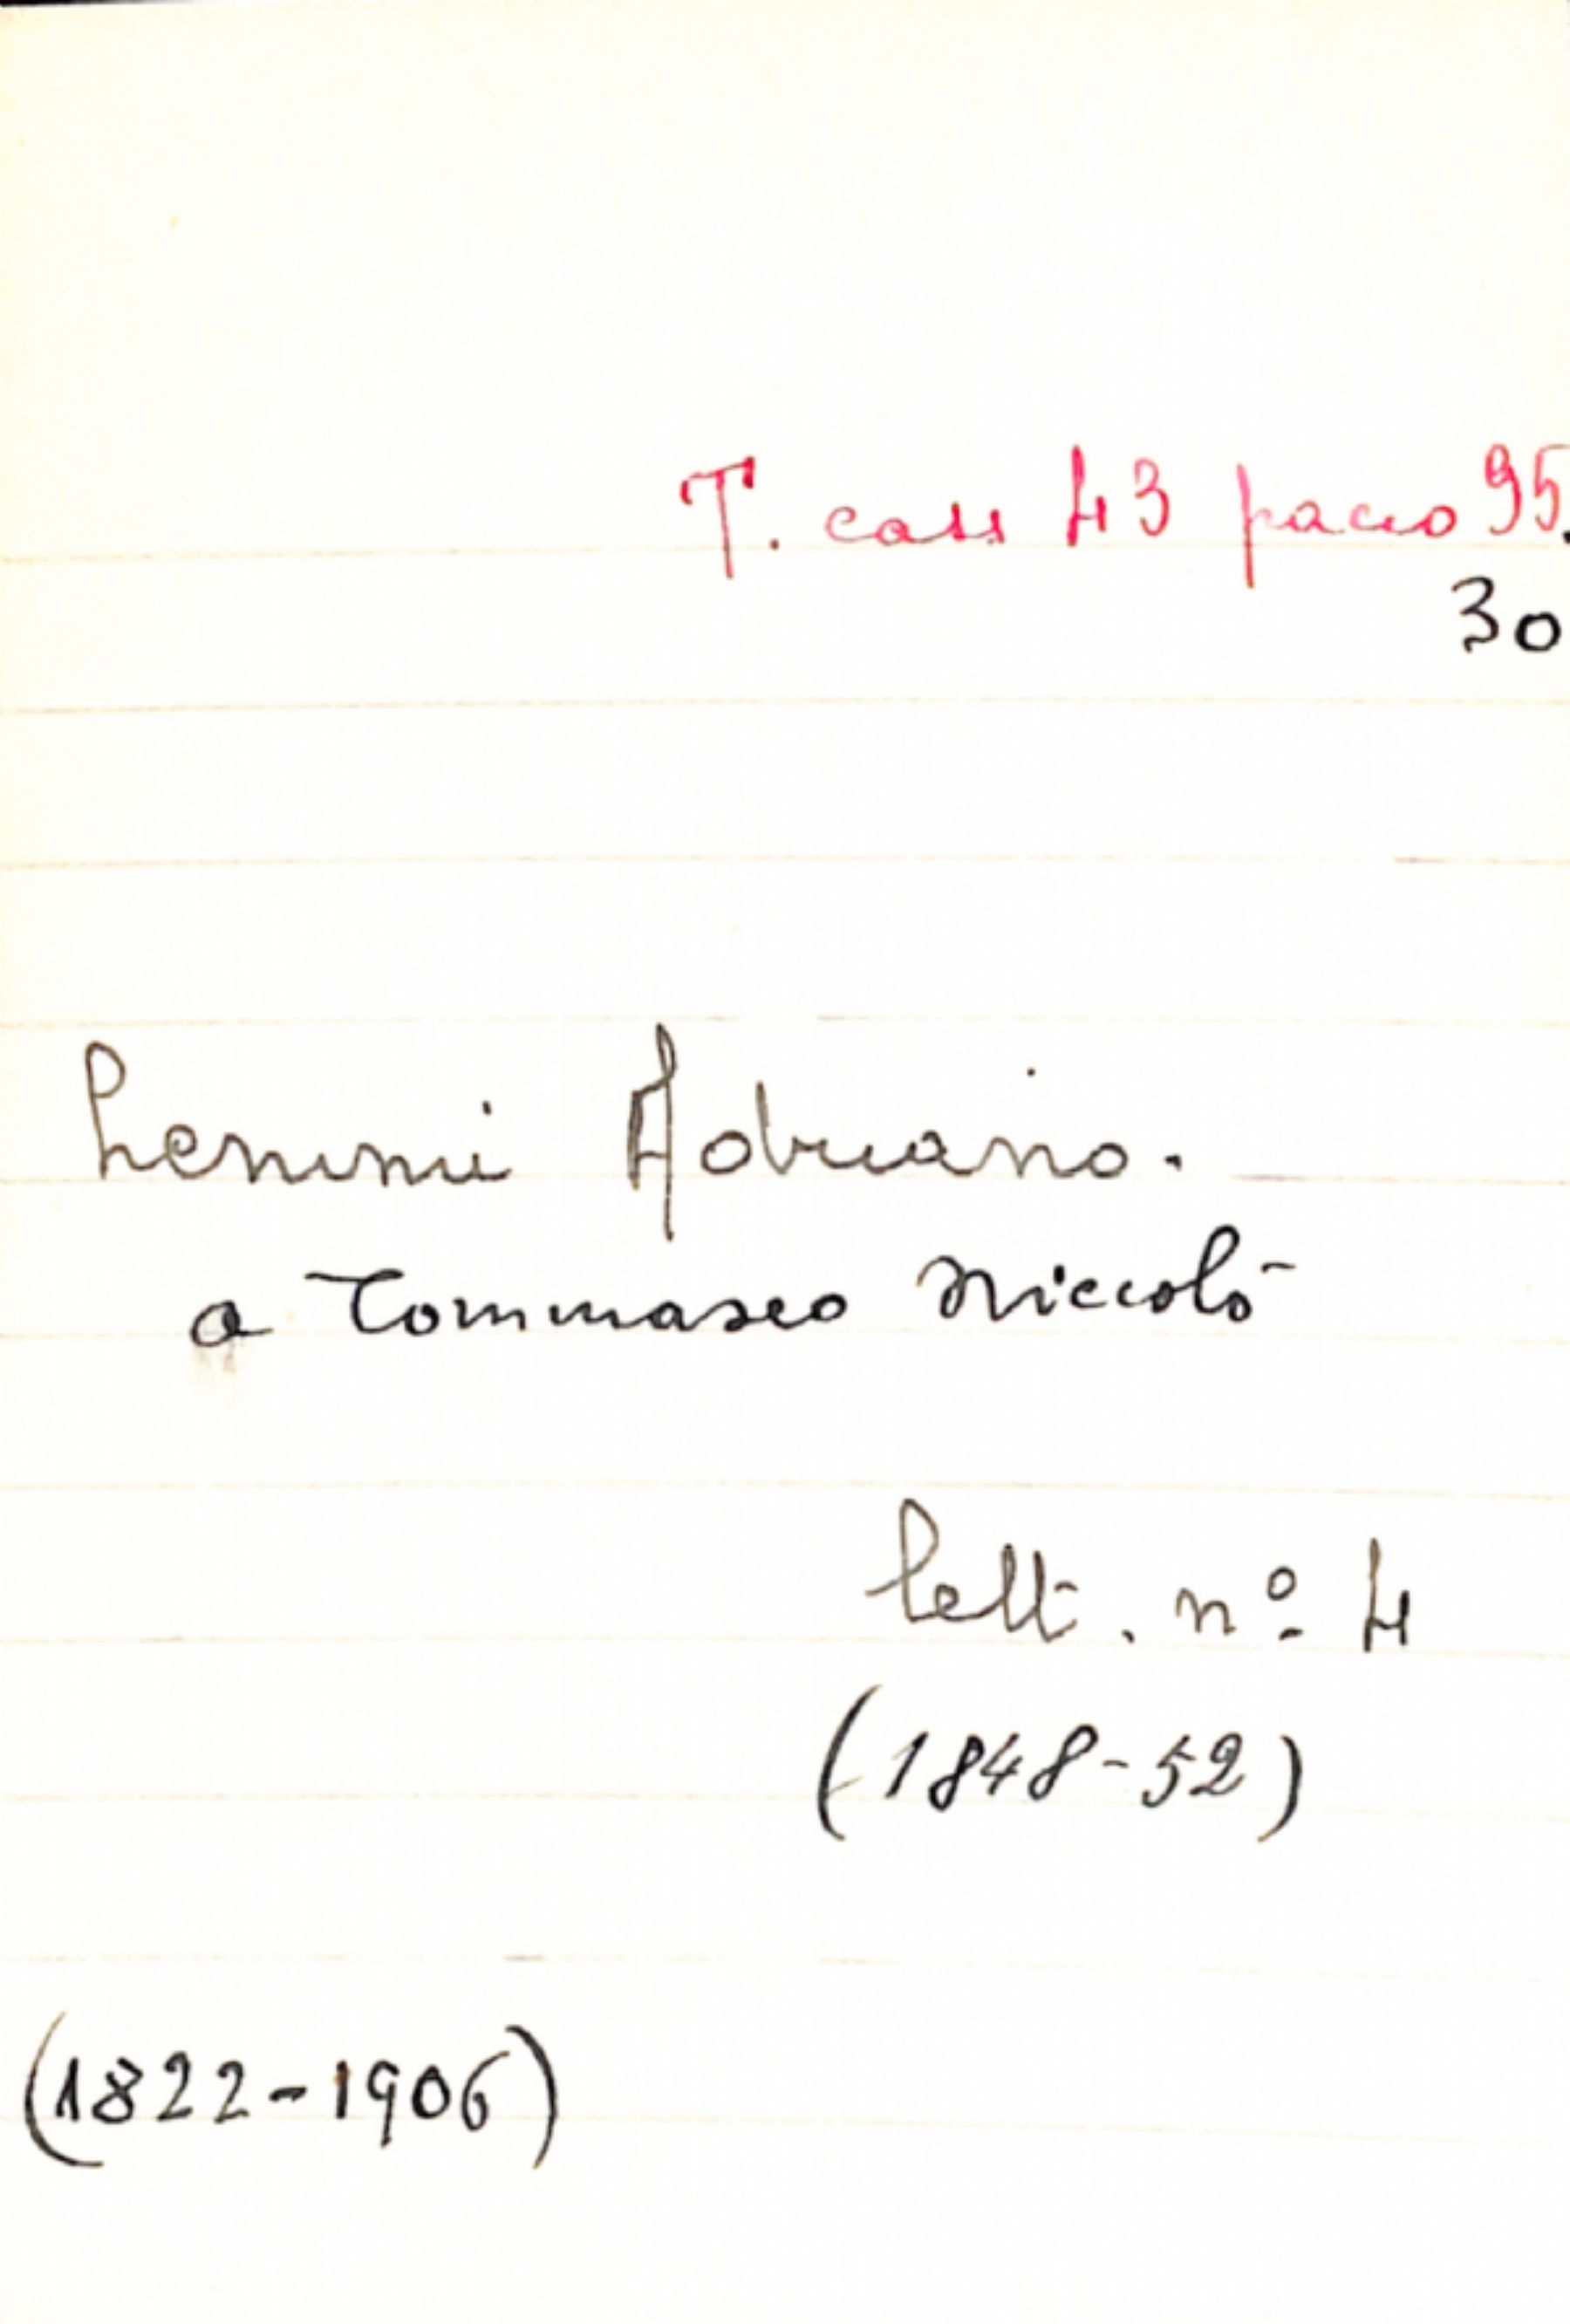 T. cass 43 pacco 95.
30
Lemmi Adriano.
a Tommaseo Niccolò
lett. nº 4
(1848-52)
(1822-1906)